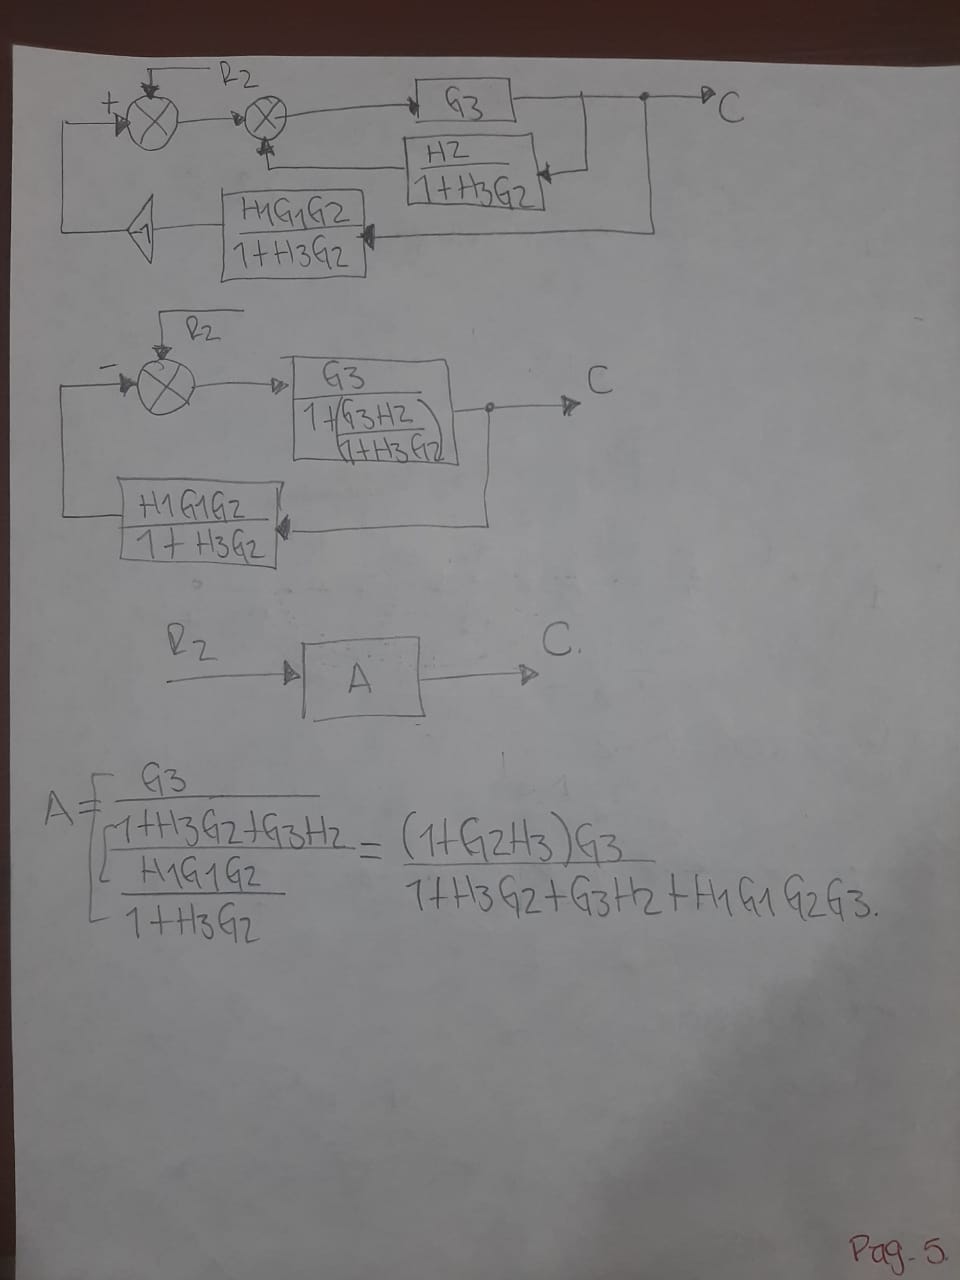 R2
+
G3
C
H2
1+H3G2
-1
H1G1G2
1+H3G2
R2
-
G3
1+(G3H2
1+H3G2)
C
H1G1G2
1+H3G2
R2
A
C.
A=
G3
1+H3G2+G3H2
H1G1G2
1+H3G2
= (1+G2H3)G3
1+H3G2+G3H2+H1G1G2G3.
Pag-5